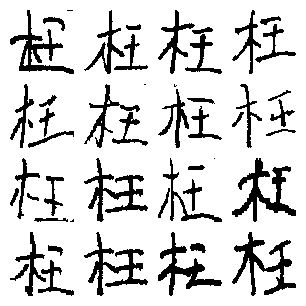 枉枉枉枉
枉枉枉枉
枉枉枉枉
枉枉枉枉